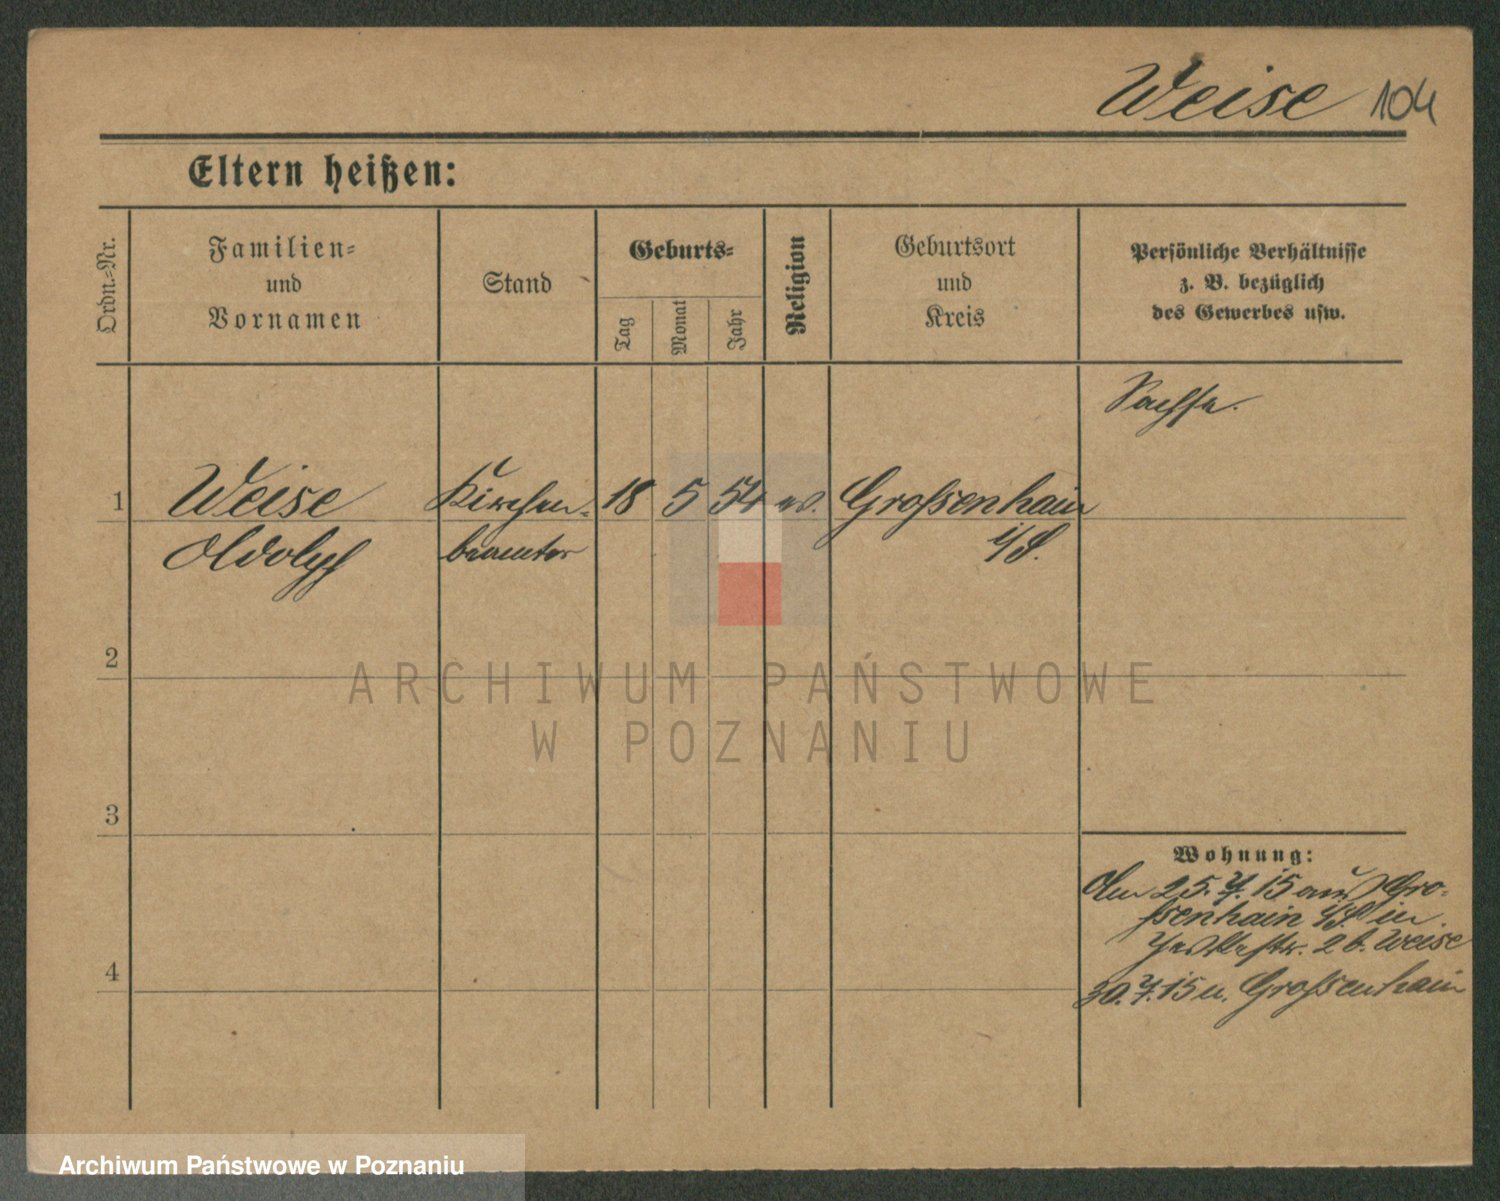 Weise 104
Eltern heißen:
Ordn.-Nr.
Familien-
und
Vornamen
Stand
Geburts-
Tag
Monat
Jahr
Religion
Geburtsort
und
Kreis
Persönliche Verhältnisse
z. B. bezüglich
des Gewerbes usw.
Sachse.
1 Weise Kirchen- 18 5 54 ev. Grossenhain
Adolf beamter i/S.
2
3
4
ARCHIWUM PAŃSTWOWE
W POZNANIU
Wohnung:
Am 25. 7. 15 aus Gro-
ssenhain i/S in
2 b. Weise
30. 7. 15 n. Grossenhain
Archiwum Państwowe w Poznaniu